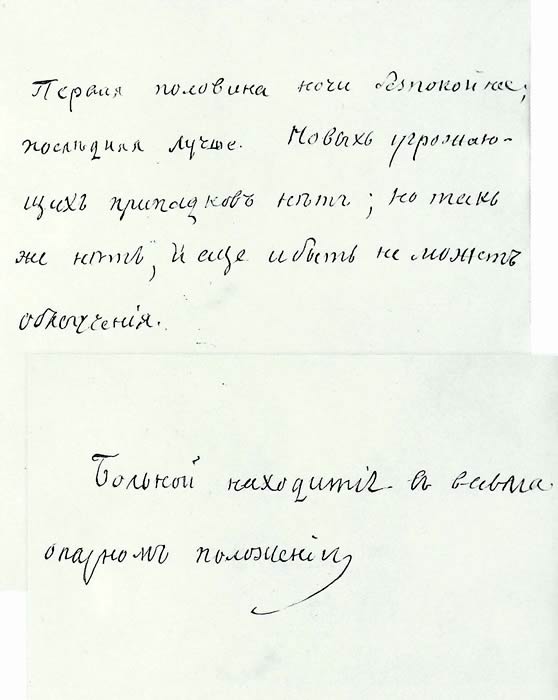 Первая половина ночи безпокойна,
последняя лучше. Новыхъ угрожаю-
щихъ припадковъ нѣтъ; но такъ
же нѣтъ, и еще и быть не можетъ
облегченія.
Больной находится въ весьма
опасномъ положеніи